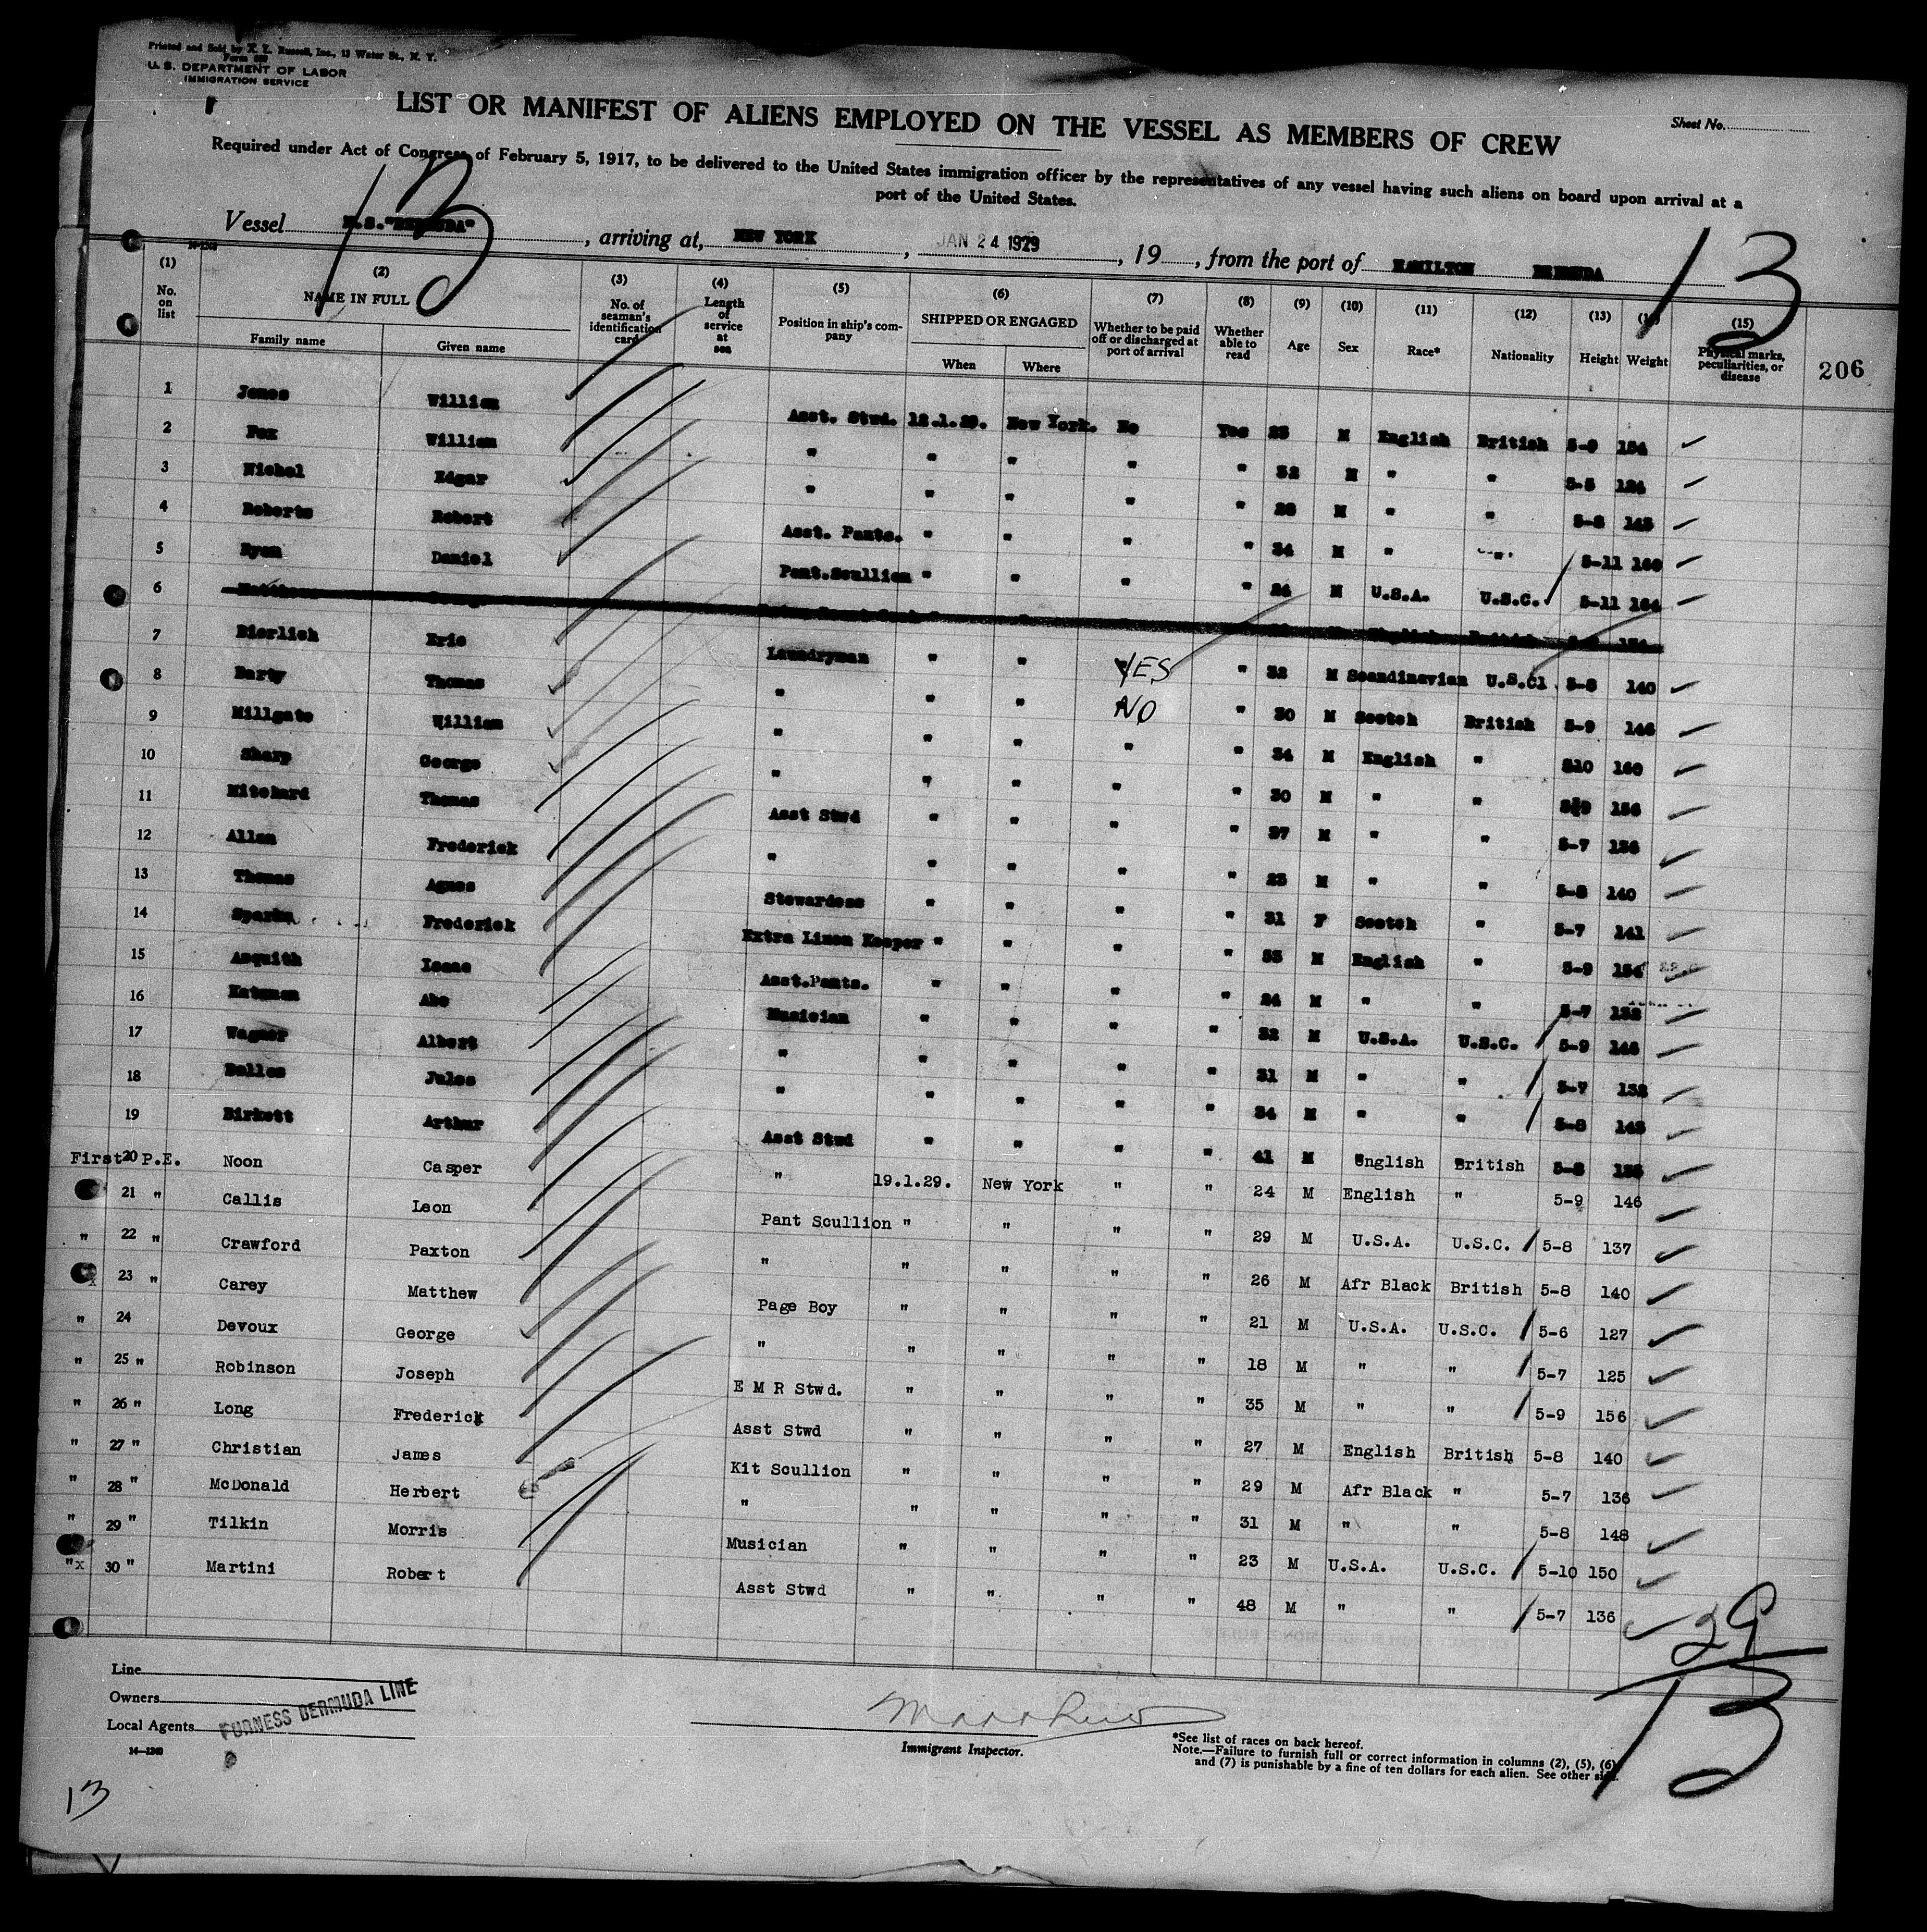 Printed and Sold by N. Y. Russell, Inc., 13 Water St., N. Y.
U. S. DEPARTMENT OF LABOR
IMMIGRATION SERVICE
LIST OR MANIFEST OF ALIENS EMPLOYED ON THE VESSEL AS MEMBERS OF CREW
Sheet No.
Required under Act of Congress of February 5, 1917, to be delivered to the United States immigration officer by the representatives of any vessel having such aliens on board upon arrival at a
port of the United States.
13
13
Vessel M.S. "BERMUDA", arriving at, NEW YORK, JAN 24 1929, 19, from the port of HAMILTON BERMUDA
(1) No. on list (2) NAME IN FULL Family name Given name (3) No. of seaman's identification card (4) Length of service at sea (5) Position in ship's company (6) SHIPPED OR ENGAGED When Where (7) Whether to be paid off or discharged at port of arrival (8) Whether able to read (9) Age (10) Sex (11) Race* (12) Nationality (13) Height (14) Weight (15) Physical marks, peculiarities, or disease
206
1 Jones William Asst. Stwd. 12.1.29. New York. No Yes 23 M English British 5-9 154
2 Fox William " " " " " 32 M " " 5-5 124
3 Nichol Edgar " " " " " 28 M " " 5-8 145
4 Roberts Robert Asst. Pants. " " " " 34 M " " 5-11 160
5 Ryan Daniel Pant.Scullion " " " " 24 M U.S.A. U.S.C. 5-11 164
6 English British
7 Bierlich Eric Laundryman " " YES " 32 M Scandinavian U.S.C. 5-8 140
8 Barty Thomas " " " NO " 30 M Scotch British 5-9 146
9 Millgate William " " " " " 34 M English " 510 160
10 Sharp George " " " " " 30 M " " 156
11 Mitchard Thomas Asst Stwd " " " " 37 M " " 5-7 136
12 Allan Frederick " " " " " 23 M " " 5-8 140
13 Thomas Agnes Stewardess " " " " 31 F Scotch " 5-7 141
14 Sparks Frederick Extra Linen Keeper " " " " 53 M English " 5-9 154
15 Asquith Isaac Asst.Pants. " " " " 24 M " " 5-7 132
16 Katzman Abe Musician " " " " 32 M U.S.A. U.S.C. 5-9 146
17 Wagner Albert " " " " " 31 M " " 5-7 132
18 Bolles Jules " " " " " 34 M " " 5-8 143
19 Birkett Arthur Asst Stwd " " " " 41 M English British 5-8
First 20 P.E. Noon Casper " 19.1.29. New York " " 24 M English " 5-9 146
21 " Callis Leon Pant Scullion " " " " 29 M U.S.A. U.S.C. 5-8 137
" 22 " Crawford Paxton " " " " " 26 M Afr Black British 5-8 140
x 23 " Carey Matthew Page Boy " " " " 21 M U.S.A. U.S.C. 5-6 127
" 24 Devoux George " " " " " 18 M " " 5-7 125
" 25 " Robinson Joseph E M R Stwd. " " " " 35 M " " 5-9 156
" 26 " Long Frederick Asst Stwd " " " " 27 M English British 5-8 140
" 27 " Christian James Kit Scullion " " " " 29 M Afr Black " 5-7 136
" 28 " McDonald Herbert " " " " " 31 M " " 5-8 148
" 29 " Tilkin Morris Musician " " " " 23 M U.S.A. U.S.C. 5-10 150
"x 30 " Martini Robert Asst Stwd " " " " 48 M " " 5-7 136
29
13
Line
Owners
Local Agents
FURNESS BERMUDA LINE
14—1240
Immigrant Inspector.
*See list of races on back hereof.
Note.—Failure to furnish full or correct information in columns (2), (5), (6)
and (7) is punishable by a fine of ten dollars for each alien. See other side.
13